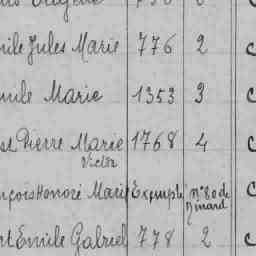 mile Jules Marie 776 2
mile Marie 1353 3
Pierre Marie 1768 4
Victor
nçois Honoré Marie Exempté n° 80 de
Dinard
Emile Gabriel 778 2